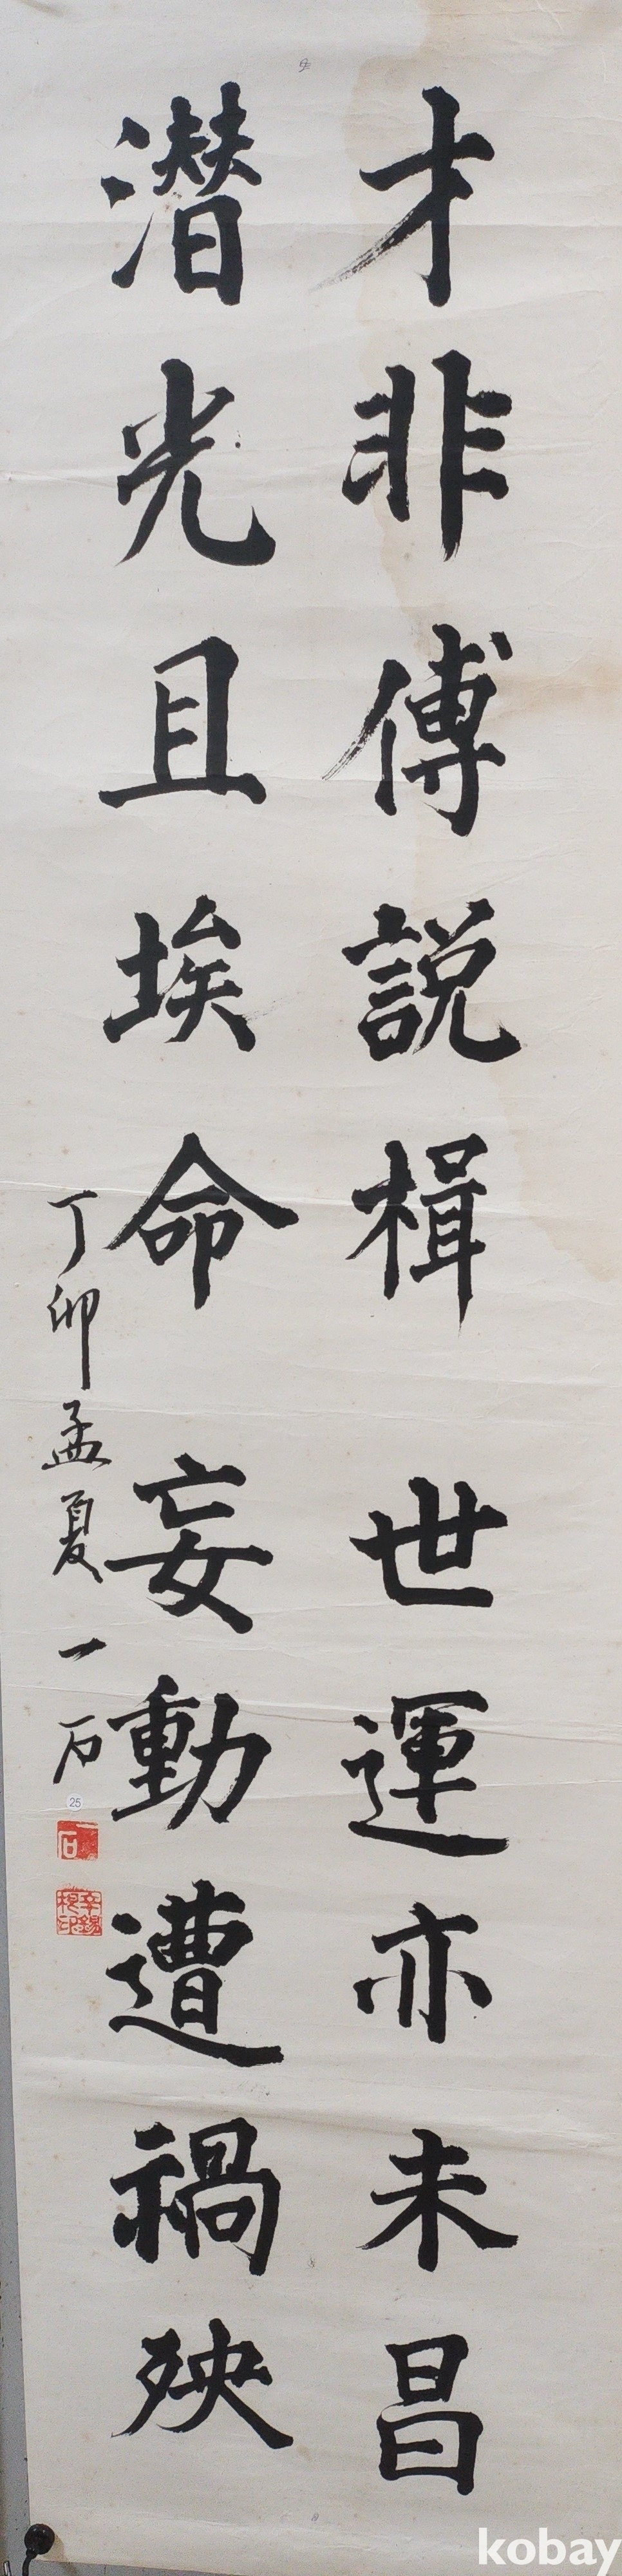 才非傅説楫 世運亦未昌
潜光且埃命 妄動遭禍殃
丁卯孟夏 一石
25
一石
辛錫
印
kobay